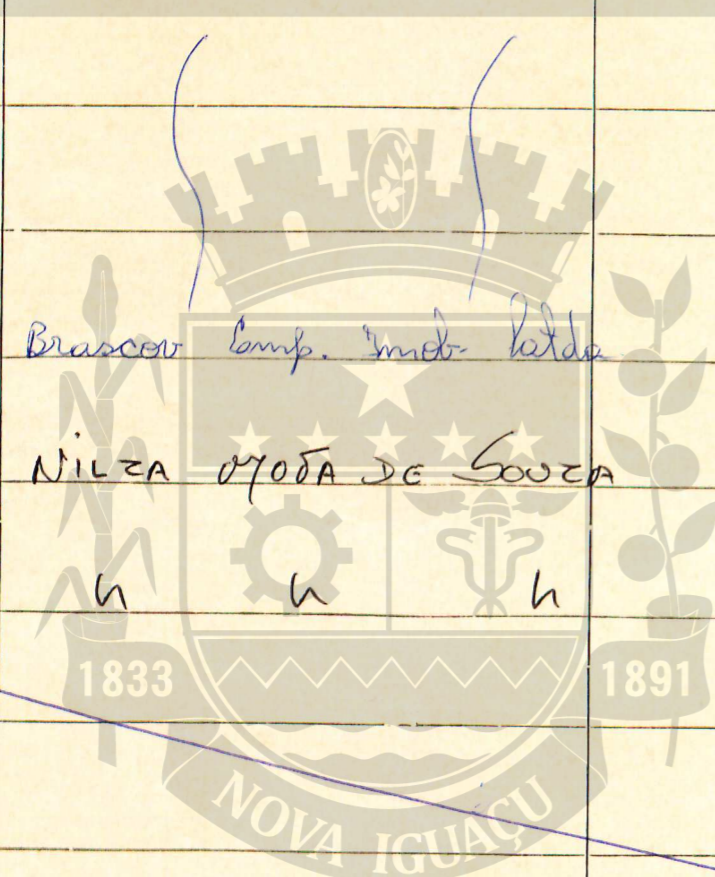 Brascov Emp. Imob. Latda
NILZA MOTA DE SOUZA
" " "
1833 1891
NOVA IGUAÇU